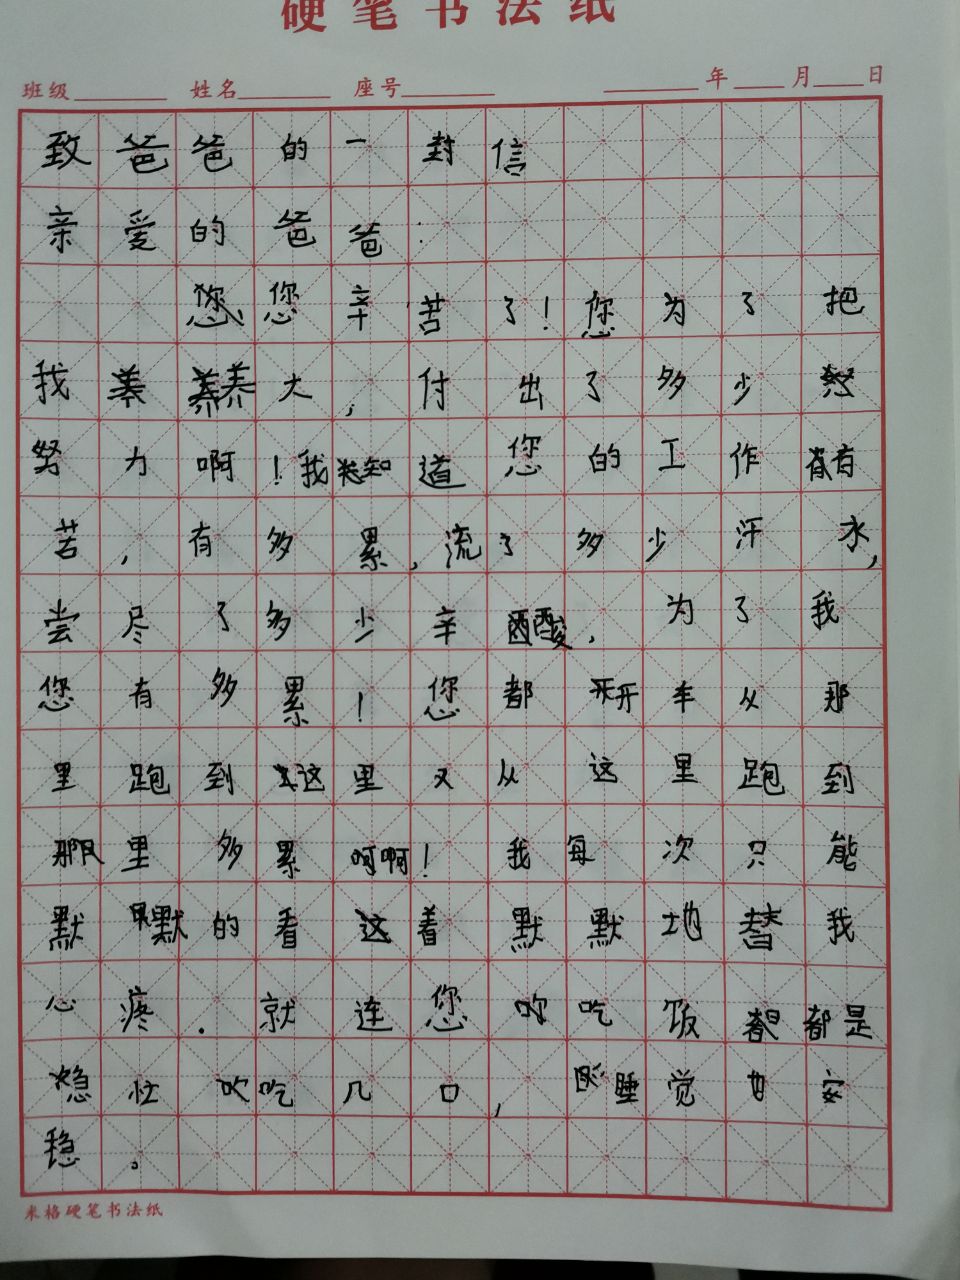 硬笔书法纸
班级 姓名 座号 年 月 日
致爸爸的一封信
亲爱的爸爸：
您、您辛苦了！您为了把
我养大，付出了多少
努力啊！我知道您的工作有
苦，有多累，流了多少汗水，
尝尽了多少辛酸，为了我
您有多累！您都开车从那
里跑到这里又从这里跑到
那里多累啊！我每次只能
默默的看着默默地替我
心疼．就连您吃饭都是
急忙吃几口，睡觉也安
稳。
米格硬笔书法纸